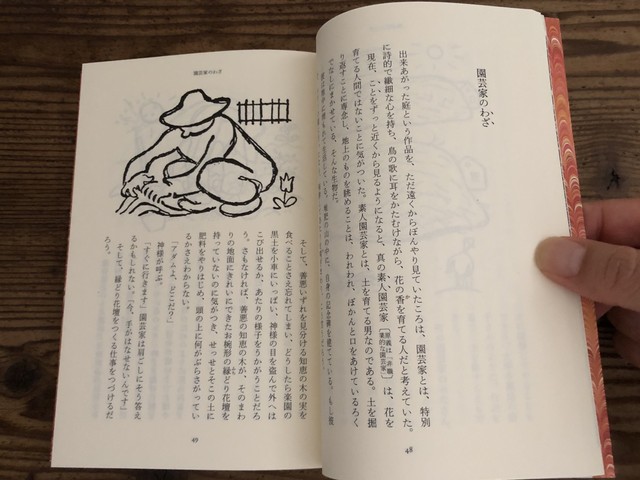 園芸家のわざ
出来あがった庭という作品を、ただ遠くからぼんやり見ていたころは、園芸家とは、特別
に詩的で繊細な心を持ち、鳥の歌に耳をかたむけながら、花の香を育てる人だと考えていた。
現在、ことをずっと近くから見るようになると、真の素人園芸家〔原義は「非職業的な園芸家」〕は、花を
育てる人間ではないことに気がついた。素人園芸家とは、土を育てる男なのである。土を掘
り返すことに専念し、地上のものを眺めることは、われわれ、ぽかんと口をあけているろく
でなしにまかせている、そんな生物だ。
自身の記念碑を建てている。もし彼
48
園芸家のわざ
そして、善悪いずれを見分ける知恵の木の実を
食べることさえ忘れてしまい、どうしたら楽園の
黒土を小車にいっぱい、神様の目を盗んで外へは
こび出せるか、あたりの様子をうかがうことだろ
う。さもなければ、善悪の知恵の木が、そのまわ
りの地面にきれいにできたお椀形の縁どり花壇を
持っていないのに気がつき、せっせとそこの土に
肥料をやりはじめ、頭の上に何がぶらさがってい
るかさえわからない。
「アダムよ、どこだ?」
神様が呼ぶ。
「すぐに行きます」園芸家は肩ごしにそう答え
るかもしれない、「今、手がはなせないんです」
そして、縁どり花壇をつくる仕事をつづけるだ
ろう。
49